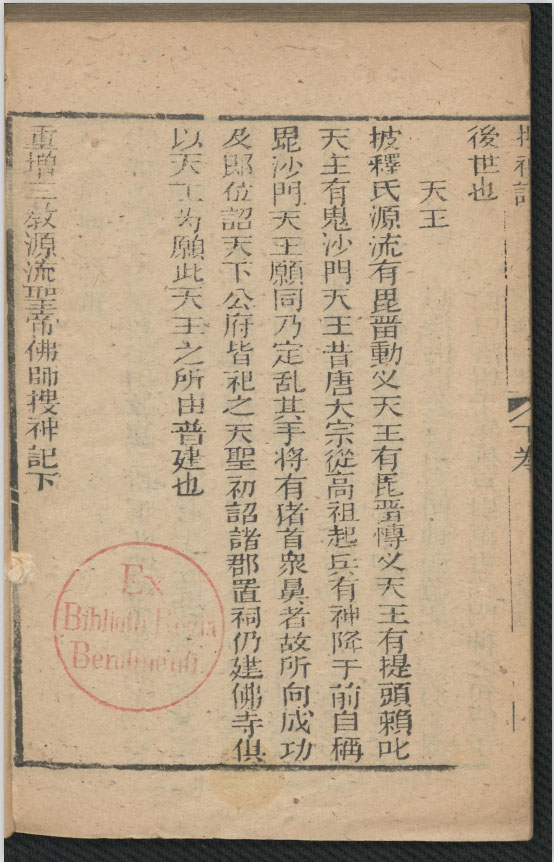 搜神記
下卷
後世也
天王
披釋氏源流有毘畱勤义天王有毘畱慱义天王有提頭賴吒
天主有鬼沙門天王昔唐大宗從高祖起兵有神降于前自稱
毘沙門天王願同乃定乱其手将有猪首衆鼻者故所向成功
及郎位詔天下公府皆祀之天聖初詔諸郡置祠仍建佛寺俱
以天王為願此天王之所由普建也
重增三教源流聖帝佛師搜神記下
Ex
Biblioth. Regia
Berolinensi.